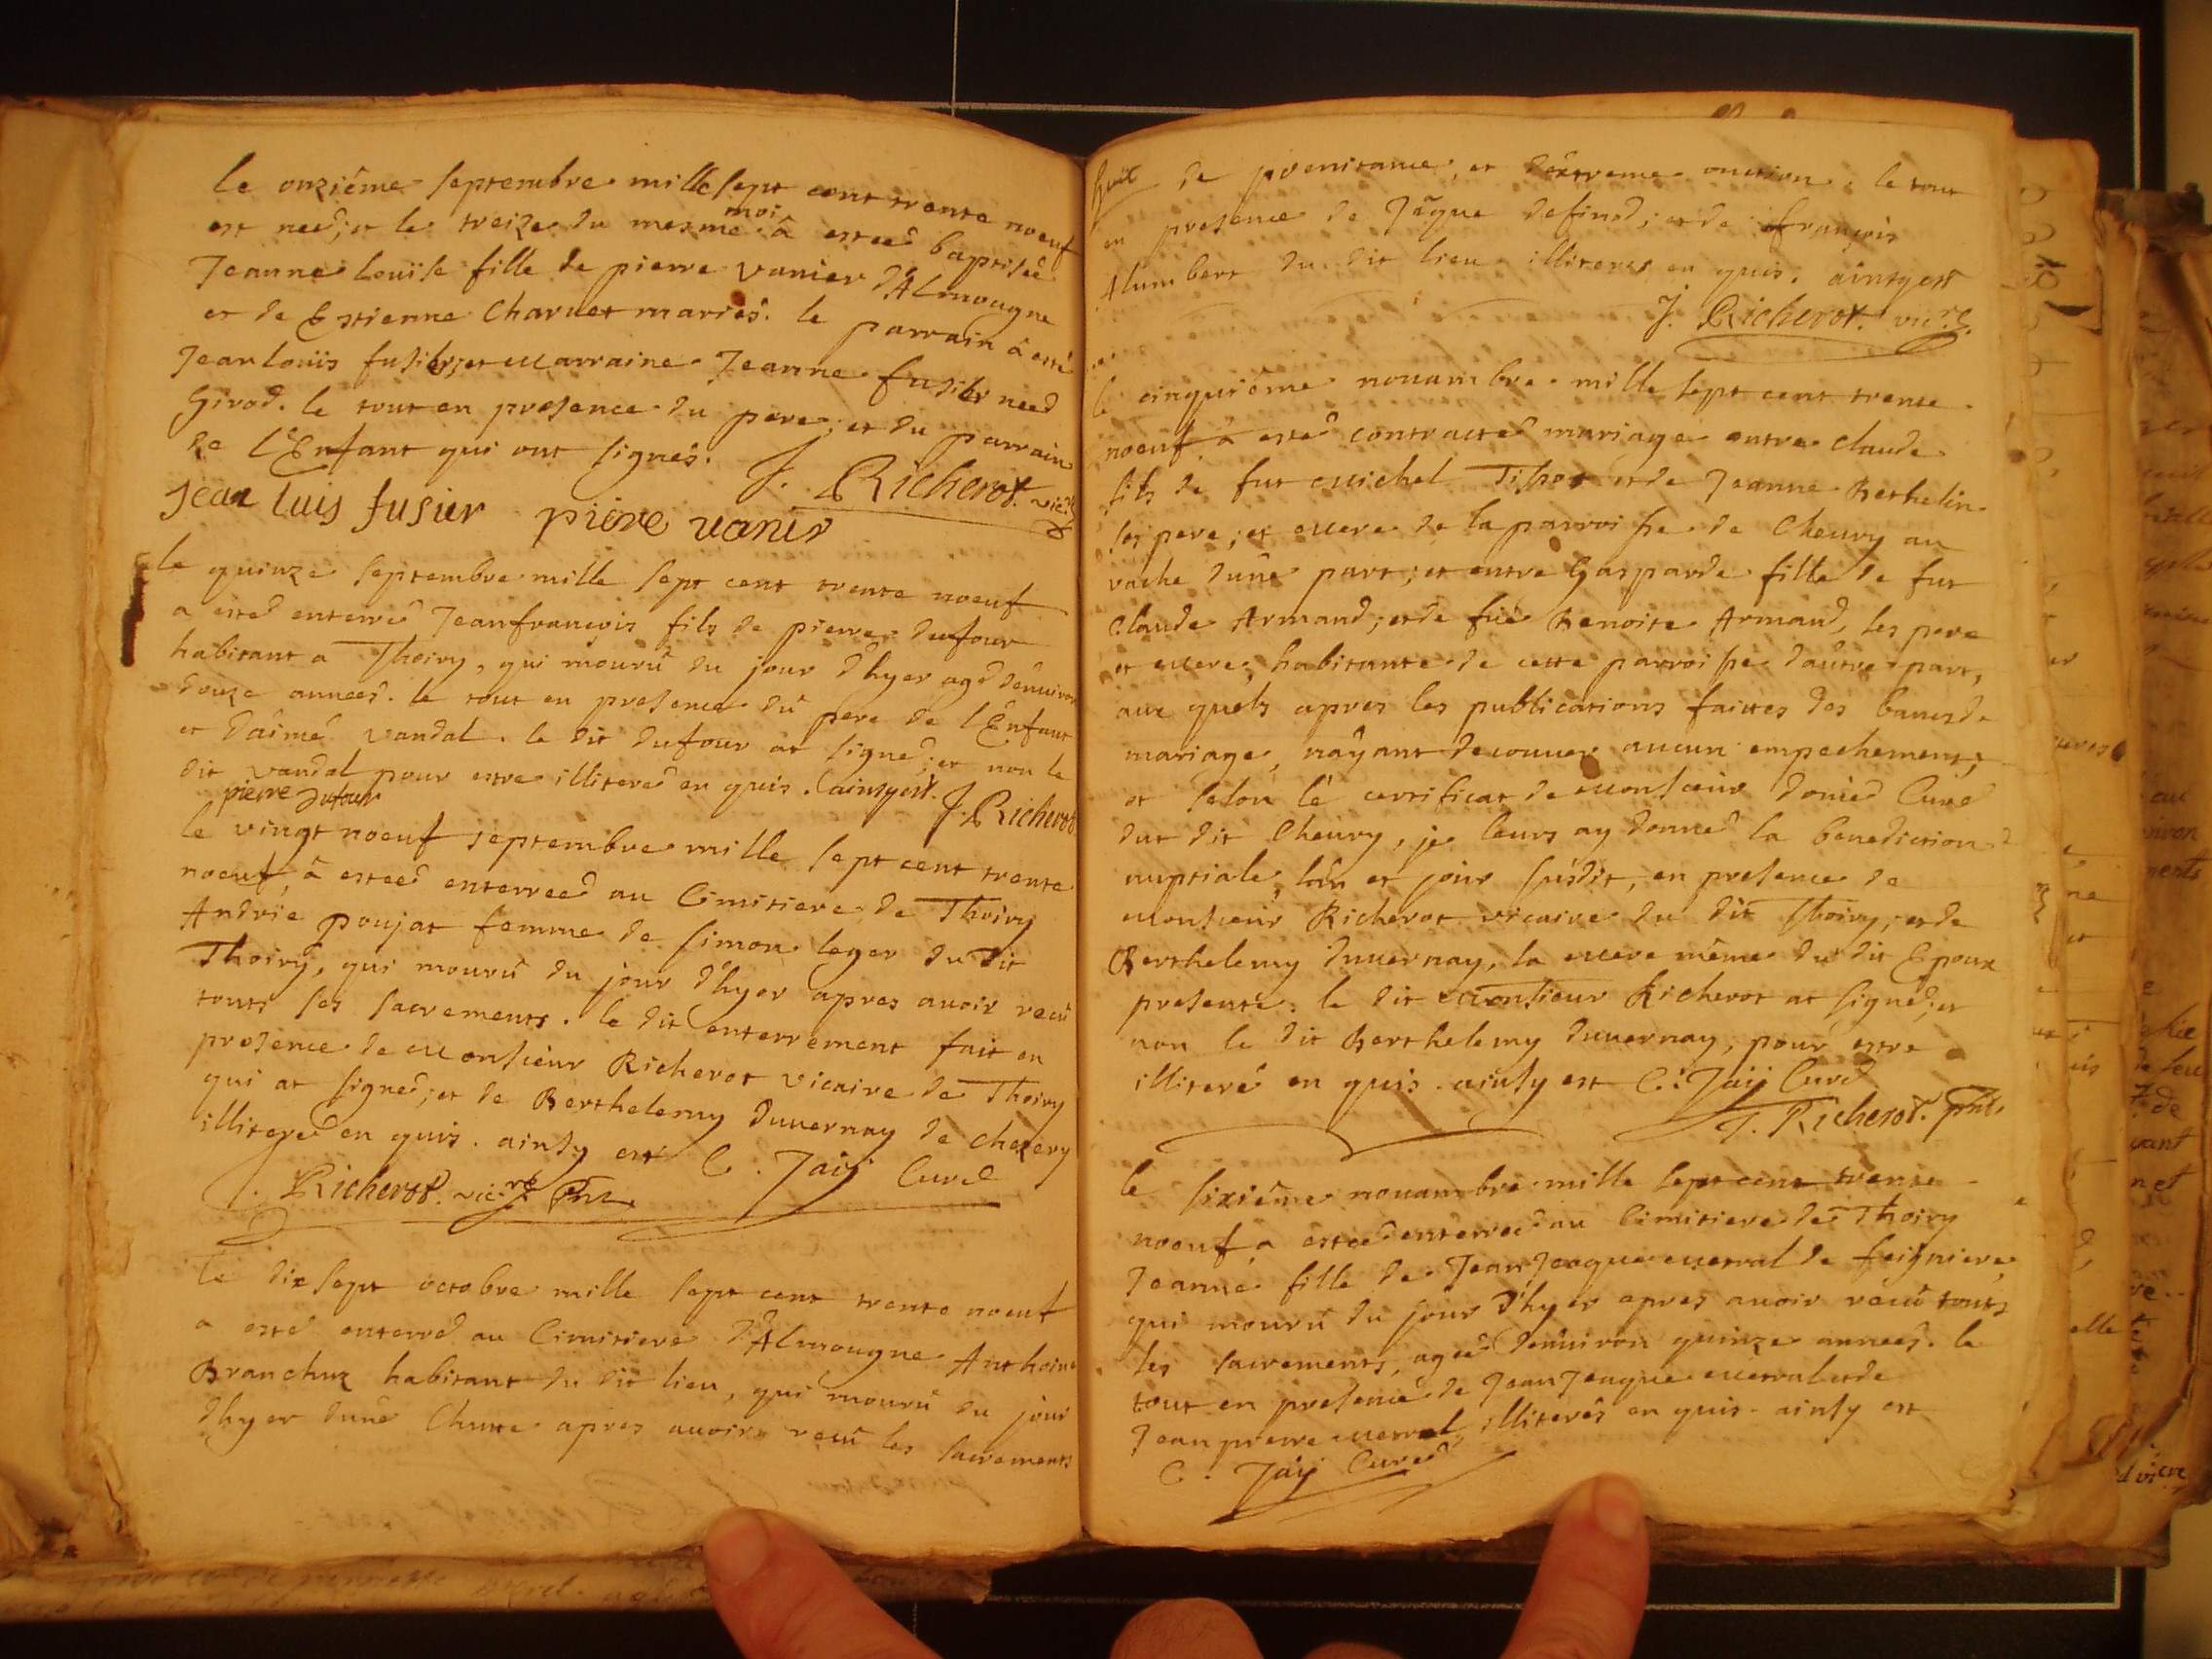 le onziême septembre mille sept cent trente noeuf
est neéd; et le treize du mesme moi â esteéd baptisée
Jeanne Louïse fille de pierre vanier d'Almougne
et de Estienne Charuet mariés. le parrain â esté
Jean Louïs fusier; et marraine Jeanne fusier neéd
Girod. le tout en presence du pere; et du parrain
de l'Enfant qui ont signés. J. Richerot. vic.re
jean luis fusier piere vanir
le quinze septembre mille sept cent trente noeuf
a estéd enterréd Jeanfrançois fils de pierre dufour
habitant a Thoiry, qui mourû du jour d'hyer agéd d'enuiron
douze années. le tout en presence du pere de l'Enfant
et d'aimé vandal. le dit dufour at signéd; et non le
dit vandal pour estre illiteréd en quis. ainsy est.
pierre dufour J. Richerot
le vingt noeuf septembre mille sept cent trente
noeuf, â esteéd enterreéd au Cimitiere de Thoiry
Andrïe poujat femme de simon leger du dit
Thoiry, qui mourû du jour d'hyer apres auoir recû
touts ses sacrements. le dit enterrement fait en
presence de monsieur Richerot vicaire de Thoiry
qui at signéd; et de Berthelemy duuernay de chezery
illiteréd en quis. ainsy est C. Jaÿ Curéd
J. Richerot. vic.re Pnt.
Le dix sept octobre mille sept cent trente noeuf
a estéd enterréd au Cimitiere d'Almougne Anthoine
Branchuz habitant du dit lieu, qui mourû du jour
d'hyer d'une Chutte apres auoir recû les sacrements
de poenitance, et d'extreme onction. le tout
en presence de Jâque definod; et de françois
Alumbert du dit lieu illiterés en quis. ainsy est
J. Richerot. vic.re
le cinquiéme nouambre mille sept cent trente
noeuf â esté contractéd mariage entre Claude
fils de fut michel Tissot et de Jeanne Berthelin
ses pere; et mere de la parroisse de Cheury au
vache d'une part; et entre Gasparde fille de fut
Claude Armand; et de fuë Benoite Armand, ses pere
et mere; habitante de cette parroisse d'autre part,
aux quels apres les publications faittes des bancs de
mariage, n'aÿant decouuer aucun empechement;
et selon le certificat de monsieur Curéd
dut dit Cheury, je leurs ay donnéd la benediction
nuptiale, l'an et jour susdit, en presence de
monsieur Richerot vicaire du dit Thoiry; et de
Berthelemy duuernay, la mere même du dit Epoux
presente. le dit monsieur Richerot at signéd; et
non le dit Berthelemy duuernay, pour estre
illiteré en quis. ainsy est C. Jaÿ Curéd
J. Richerot. pnt.
le sixiéme nouambre mille sept cent trente
noeuf â esteéd enterreéd au Cimitiere de Thoiry
Jeanne fille de Jean Jeaque mermal de feigniere,
qui mourû du jour d'hyer apres auoir recû touts
les sacrements, ageéd d'enuiron quinze années. le
tout en presence de Jean Jeaque mermal et de
Jean pierre mermal, illiterés en quis. ainsy est
C. Jaÿ Curéd